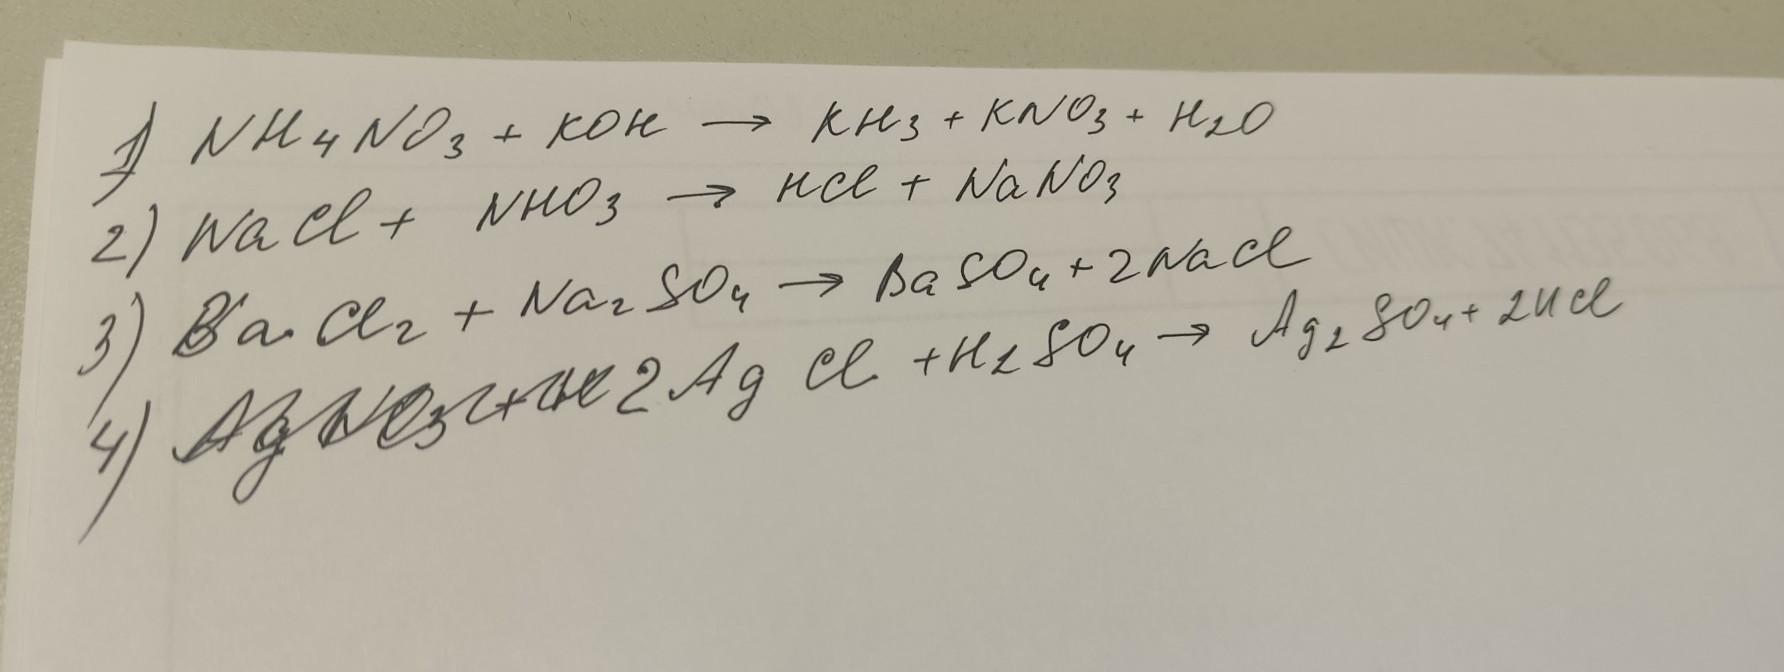 1) NH₄NO₃ + KOH → KH₃ + KNO₃ + H₂O
2) NaCl + NHO₃ → HCl + NaNO₃
3) BaCl₂ + Na₂SO₄ → BaSO₄ + 2NaCl
4) 2AgCl + H₂SO₄ → Ag₂SO₄ + 2HCl